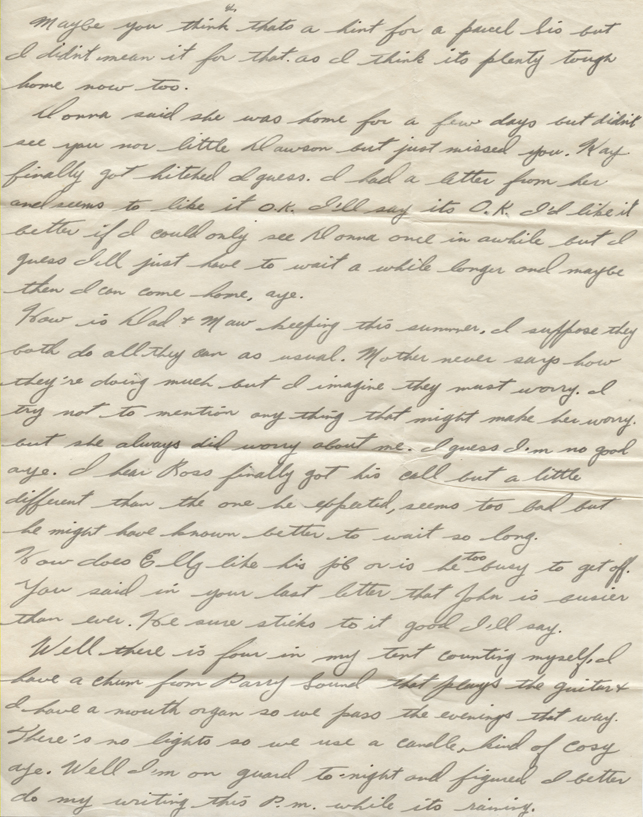 4.
Maybe you think thats a hint for a parcel Sis but
I didn't mean it for that. as I think its plenty tough
home now too.
Donna said she was home for a few days but didn't
see you nor little Dawson but just missed you. Kay
finally got hitched I guess. I had a letter from her
and seems to like it O.K. I'll say its O.K. I'd like it
better if I could only see Donna once in awhile but I
guess I'll just have to wait a while longer and maybe
then I can come home, aye.
How is Dad & Maw keeping this summer. I suppose they
both do all they can as usual. Mother never says how
they're doing much but I imagine they must worry. I
try not to mention any thing that might make her worry.
but she always did worry about me. I guess I'm no good
aye. I hear Ross finally got his call but a little
different than the one he expected, seems too bad but
he might have known better to wait so long.
How does Elly like his job or is he too busy to get off.
You said in your last letter that John is busier
than ever. He sure sticks to it good I'll say.
Well there is four in my tent counting myself. I
have a chum from Parry Sound that plays the guitar &
I have a mouth organ so we pass the evenings that way.
There's no lights so we use a candle, kind of cosy
aye. Well I'm on guard to-night and figured I better
do my writing this P.m. while its raining.